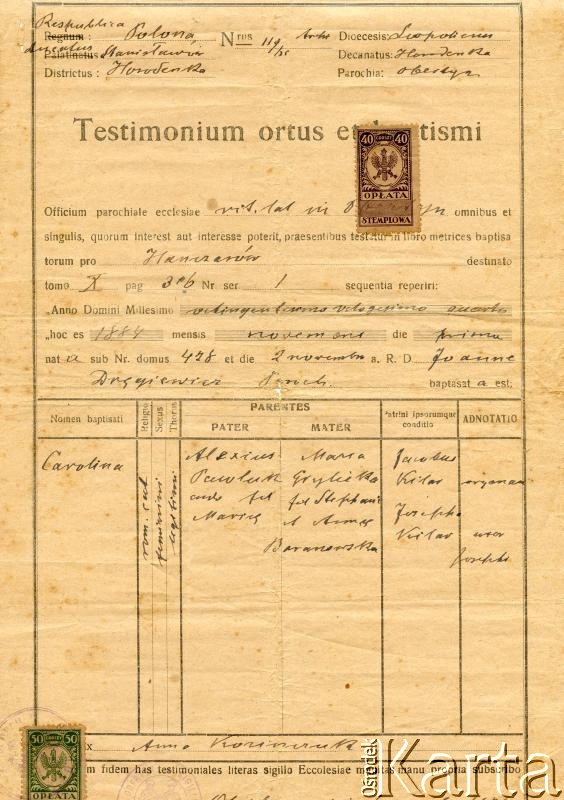 Respublica
Regnum : Polona
Ducatus
Palatinatus Stanisławów
Districtus : Horodenka
Nrus 119/25
Dioecesis: Leopoliensis
Decanatus: Horodenka
Parochia: Obertyn
Testimonium ortus et baptismi
40 GROSZY 40
OPŁATA
STEMPLOWA
Officium parochiale ecclesiae rit. lat in omnibus et
singulis, quorum interest aut interesse poterit, praesentibus testatur in libro metrices baptisa
torum pro Hanczarów destinato
tomo X pag 306 Nr ser 1 sequentia reperiri:
„Anno Domini Millesimo octingentesimo octogesimo quarto
„hoc es 1884 mensis novembris die prima
nat a sub Nr. domus 478 et die 2 novembris a. R. D. Joanne
Paroch. baptasat a est;
Nomen baptisati
Religio
Sexus
Thorus
PARENTES
PATER
MATER
Patrini ipsorumque
conditio
ADNOTATIO
Carolina
rom. cat
feminini
legitimi
Alexius
Pawluk
Maria
fil Stephani
et Annae
Baranowska
Jacobus
Kilar
Josepha
Kilar
uxor
Josephi
x Anna
50 GROSZY 50
OPŁATA
m fidem has testimoniales literas sigillo Eccolesiae munitas manu propria subscribo
Ośrodek
Karta